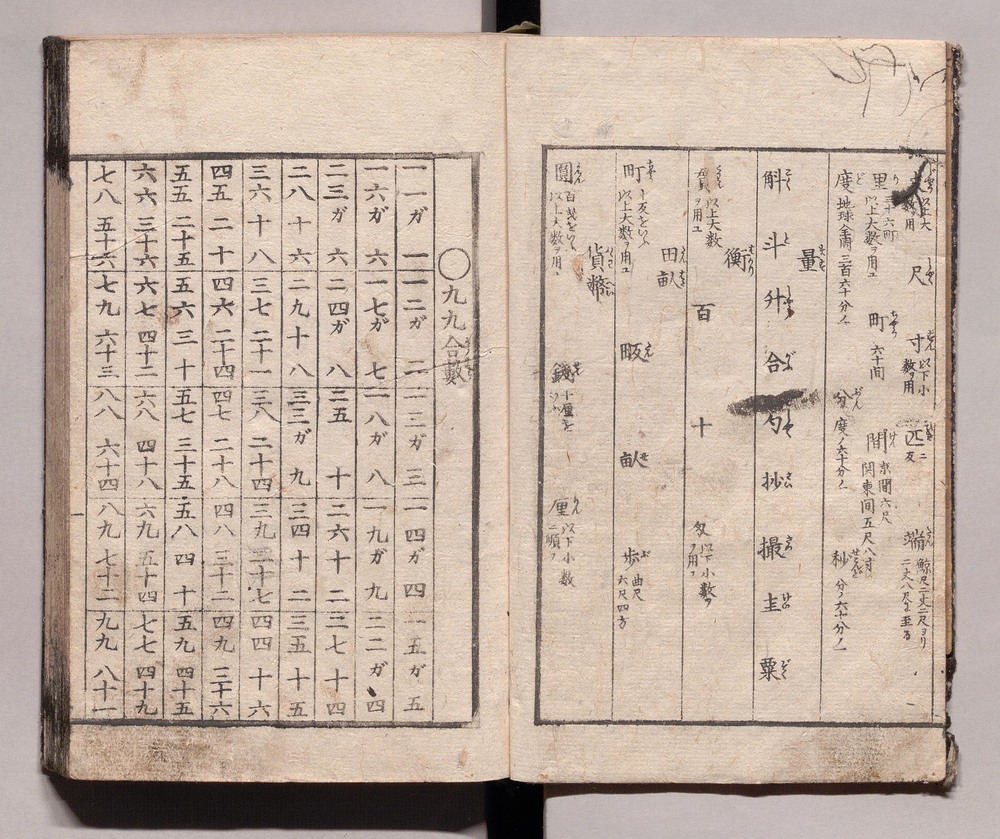 丈 以上大数ヲ用 尺 寸 以下小数ヲ用 匹 二反 端 鯨尺二丈二尺ヨリ二丈八尺ニ至る
里 三十六町 以上大数ヲ用ユ 町 六十間 間 京間六尺 関東間五尺八寸
度 地球全周三百六十分ノ一 分 度ノ六十分ノ一 秒 分ノ六十分ノ一
量
斛 斗 升 合 勺 抄 撮 圭 粟
衡
貫 以上大数ヲ用ユ 百 十 匁 以下小数ヲ用フ
田畝
町 十反をいふ 以上大数ヲ用ユ 畈 畝 歩 曲尺六尺四方
貨幣
圓 百銭をいふ 以上大数ヲ用ユ 錢 十厘をいふ 厘 以下小数ニ順フ
〇九九合數
一一ガ一 一二ガ二 一三ガ三 一四ガ四 一五ガ五
一六ガ六 一七ガ七 一八ガ八 一九ガ九 二二ガ四
二三ガ六 二四ガ八 二五十 二六十二 二七十四
二八十六 二九十八 三三ガ九 三四十二 三五十五
三六十八 三七二十一 三八二十四 三九二十七 四四十六
四五二十 四六二十四 四七二十八 四八三十二 四九三十六
五五二十五 五六三十 五七三十五 五八四十 五九四十五
六六三十六 六七四十二 六八四十八 六九五十四 七七四十九
七八五十六 七九六十三 八八六十四 八九七十二 九九八十一